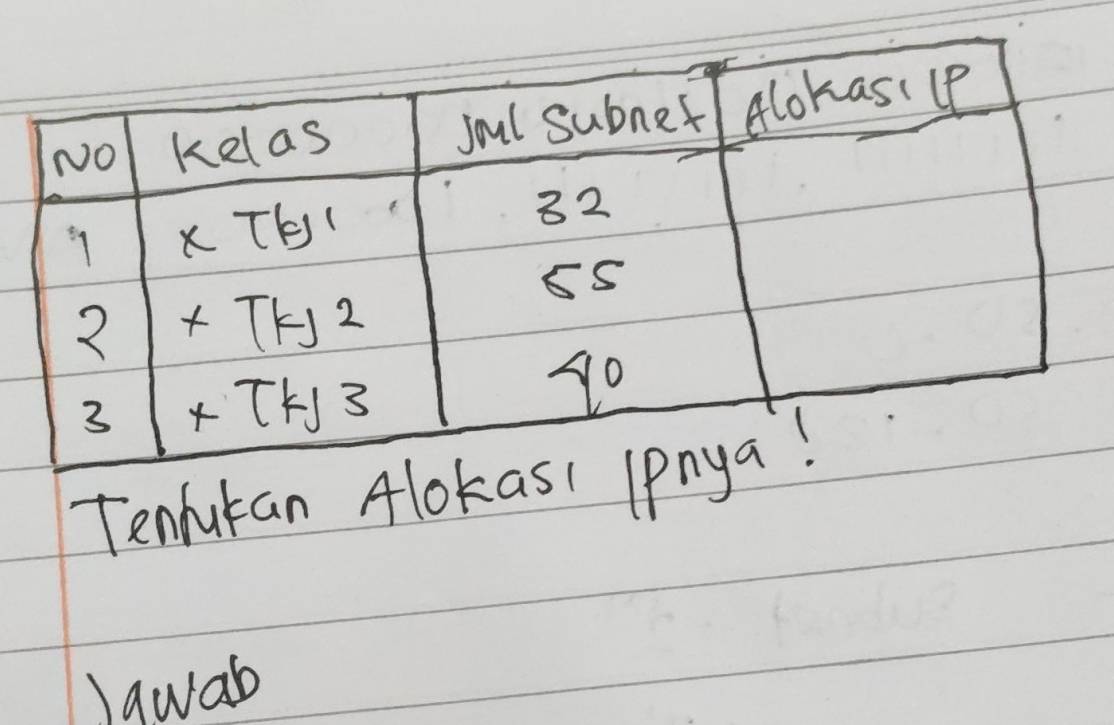 No Kelas Jml Subnet Alokasi IP
1 X TKJ 1 32
2 X TKJ 2 55
3 X TKJ 3 40
Tentukan Alokasi IPnya!
Jawab